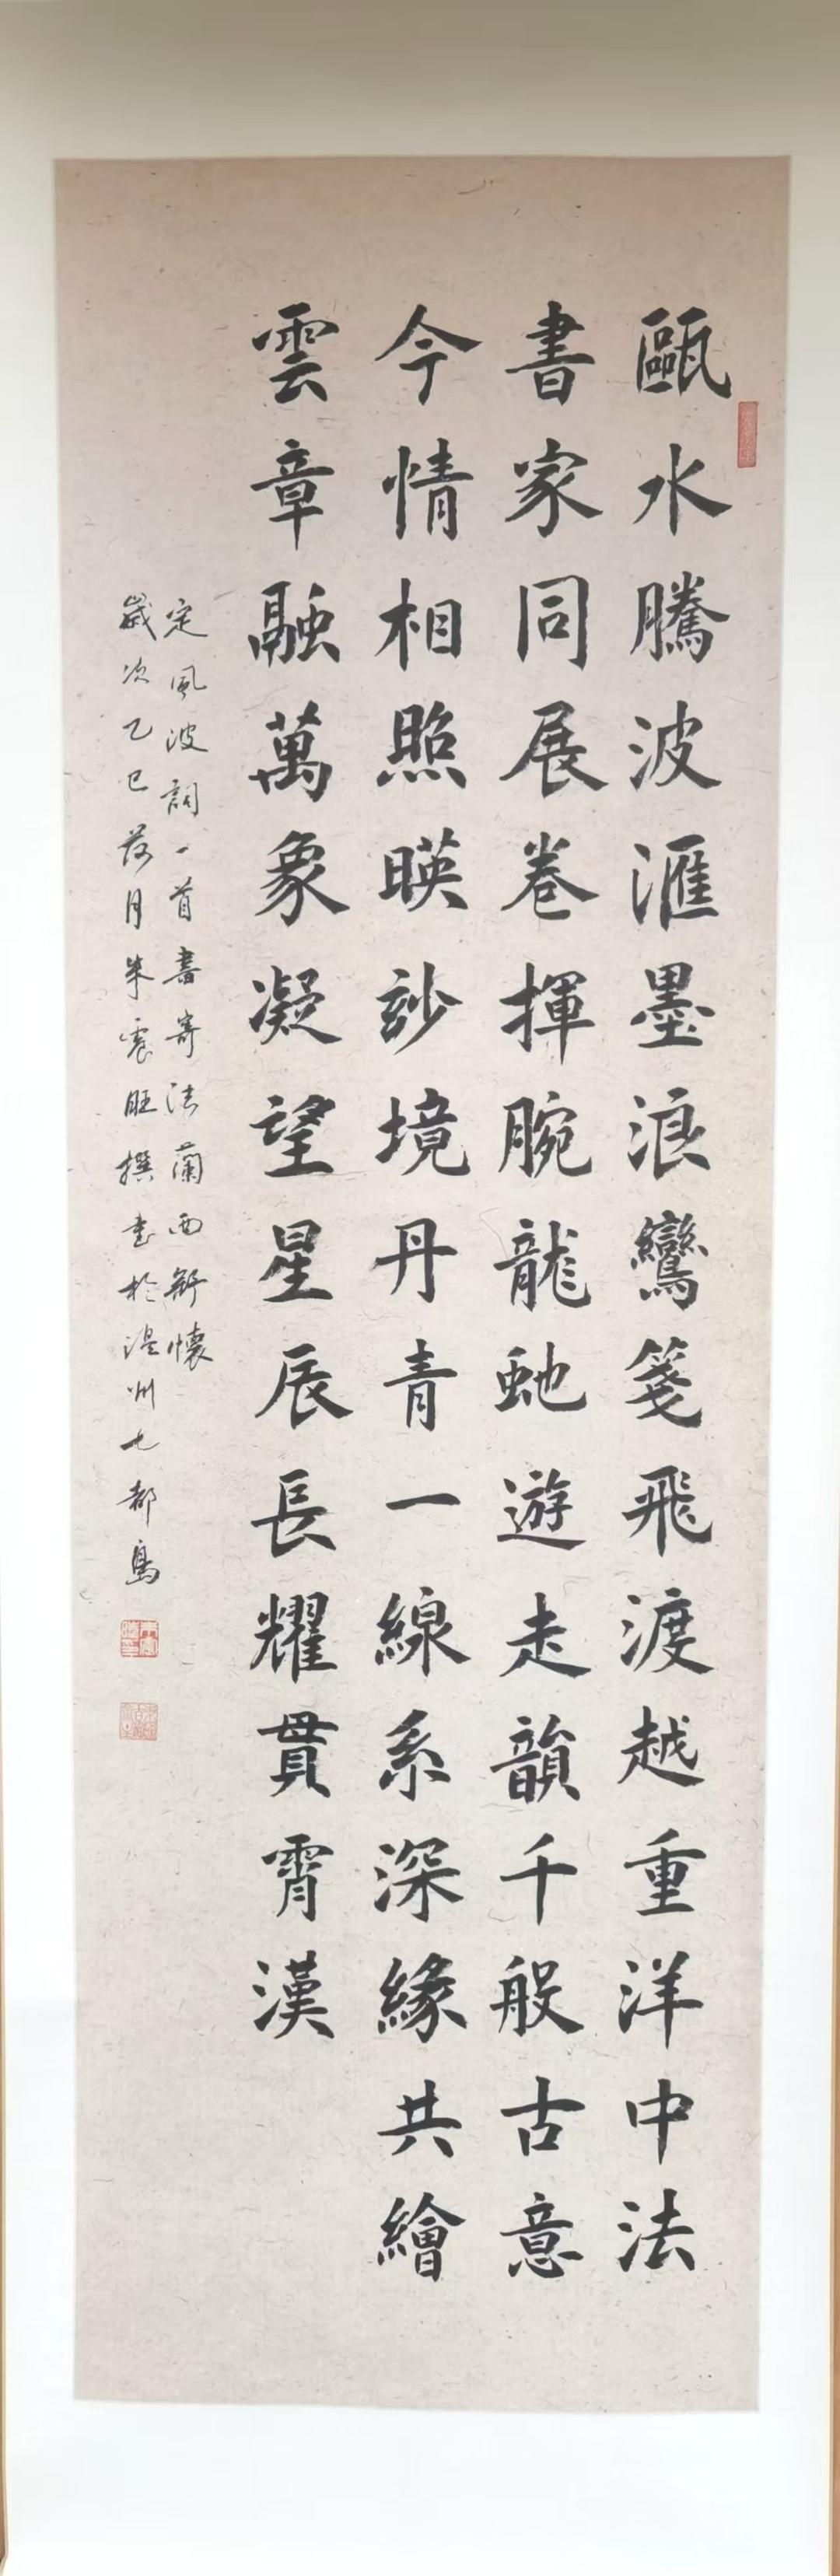 甌水騰波滙墨浪鸞箋飛渡越重洋中法
書家同展卷揮腕龍虵遊走韻千般古意
今情相照暎玅境丹青一線系深緣共繪
雲章融萬象凝望星辰長耀貫霄漢
定風波詞一首書寄法蘭西舒懷
歲次乙巳荷月朱震旺撰書於溫州七都島